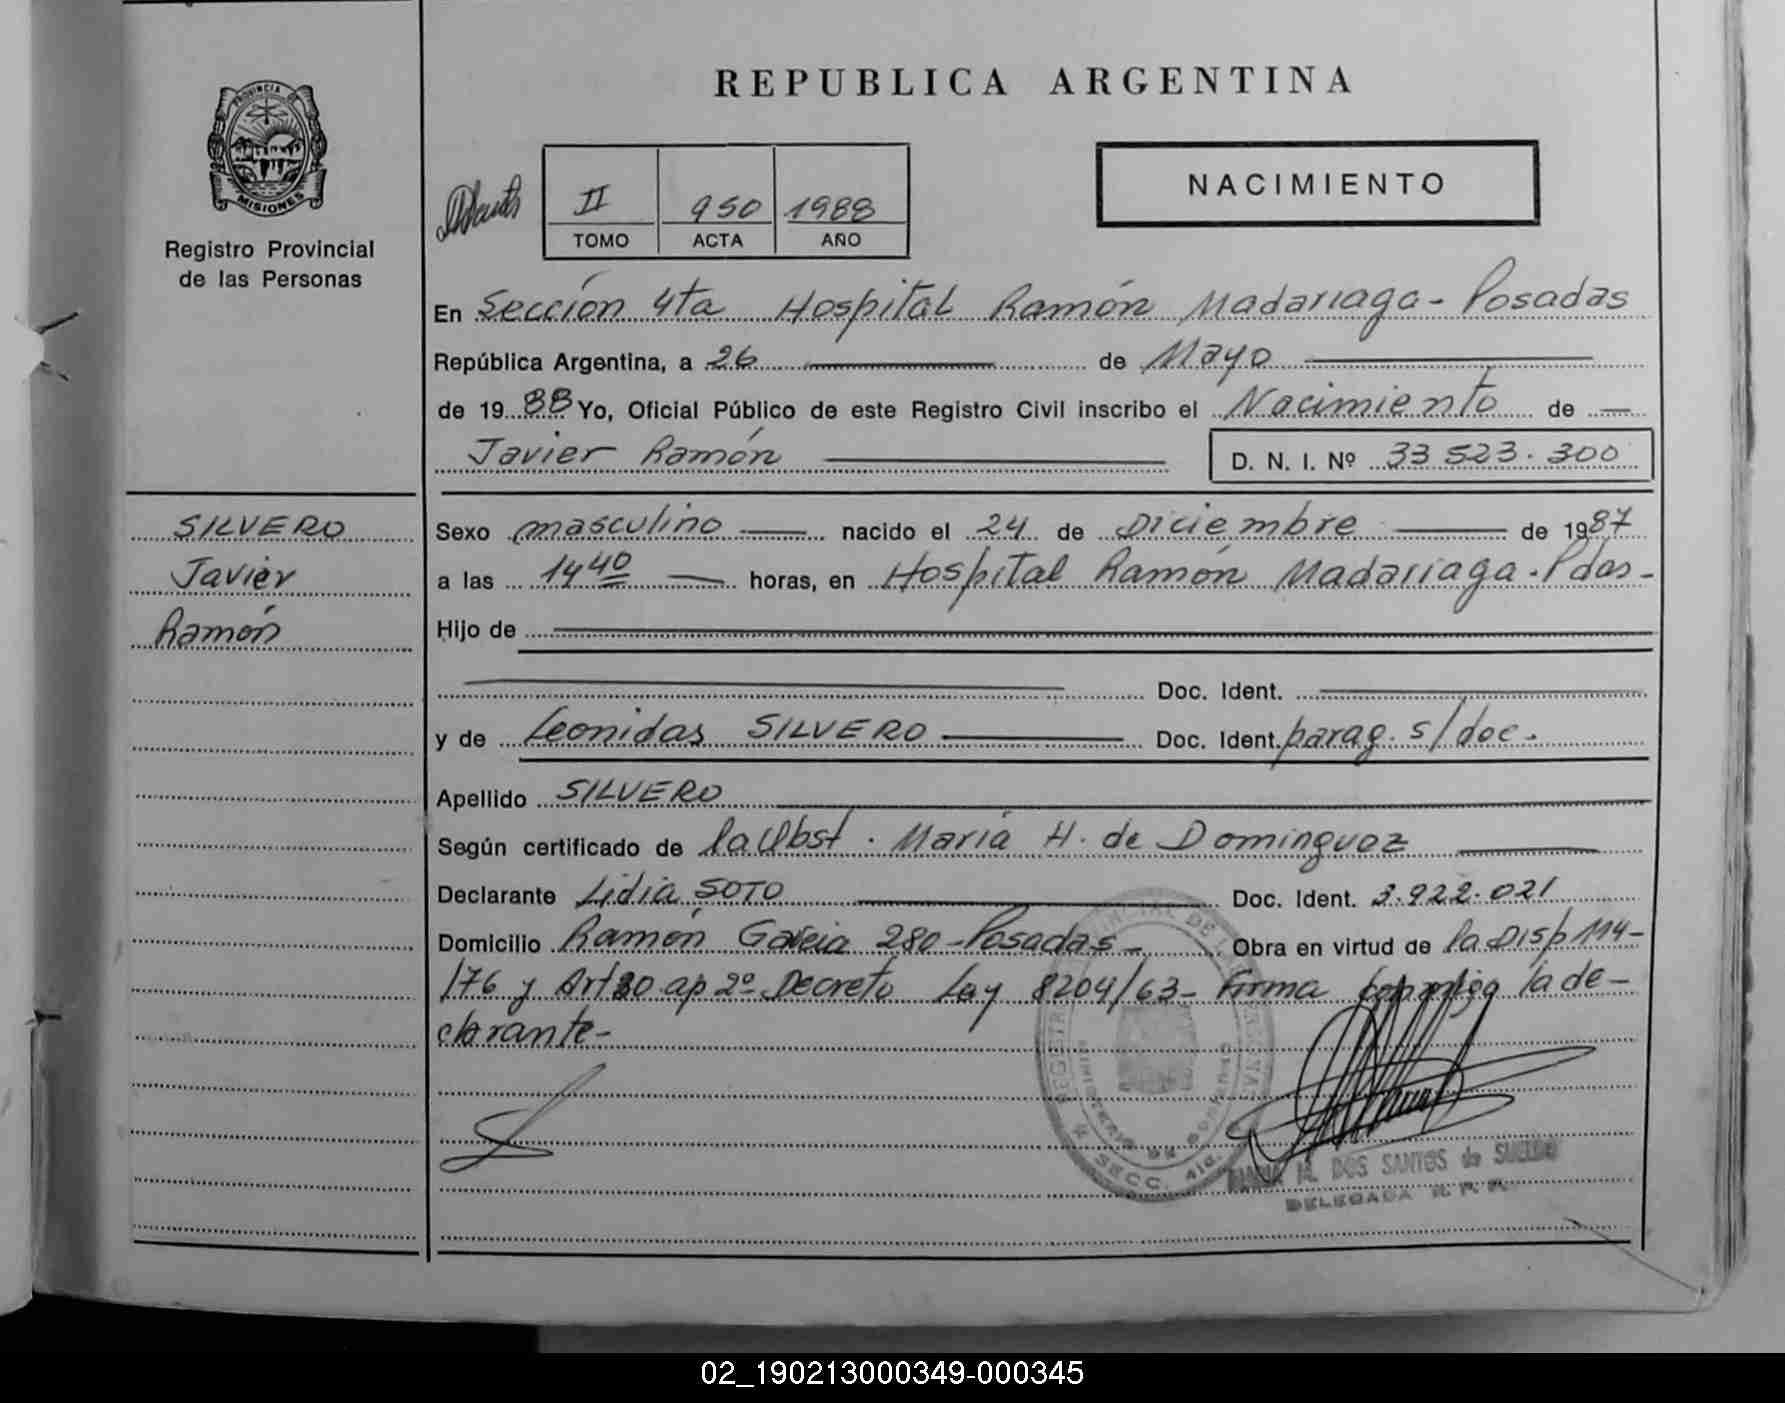 REPUBLICA ARGENTINA
PROVINCIA DE
MISIONES
Registro Provincial
de las Personas
NACIMIENTO
II 950 1988
TOMO ACTA AÑO
En Sección 4ta Hospital Ramón Madariaga - Posadas
República Argentina, a 26 de Mayo
de 19 88 Yo, Oficial Público de este Registro Civil inscribo el Nacimiento de
Javier Ramón D. N. I. Nº 33 523.300
SILVERO
Javier
Ramón
Sexo masculino nacido el 24 de Diciembre de 1987
a las 14 40 horas, en Hospital Ramón Madariaga - Pdas -
Hijo de
Doc. Ident.
y de Leonidas SILVERO Doc. Ident. parag. s/doc.
Apellido SILVERO
Según certificado de la Obst. María H. de Dominguez
Declarante Lidia SOTO Doc. Ident. 3.922.021
Domicilio Ramón Garcia 280 - Posadas - Obra en virtud de la Disp 114-
/76 y Art 30 ap 2º Decreto Ley 8204/63 - Firma conmigo la de-
clarante -
SECC. 4ta.
MARIA M. DOS SANTOS de SUELDO
DELEGADA R. P. P.
02_190213000349-000345